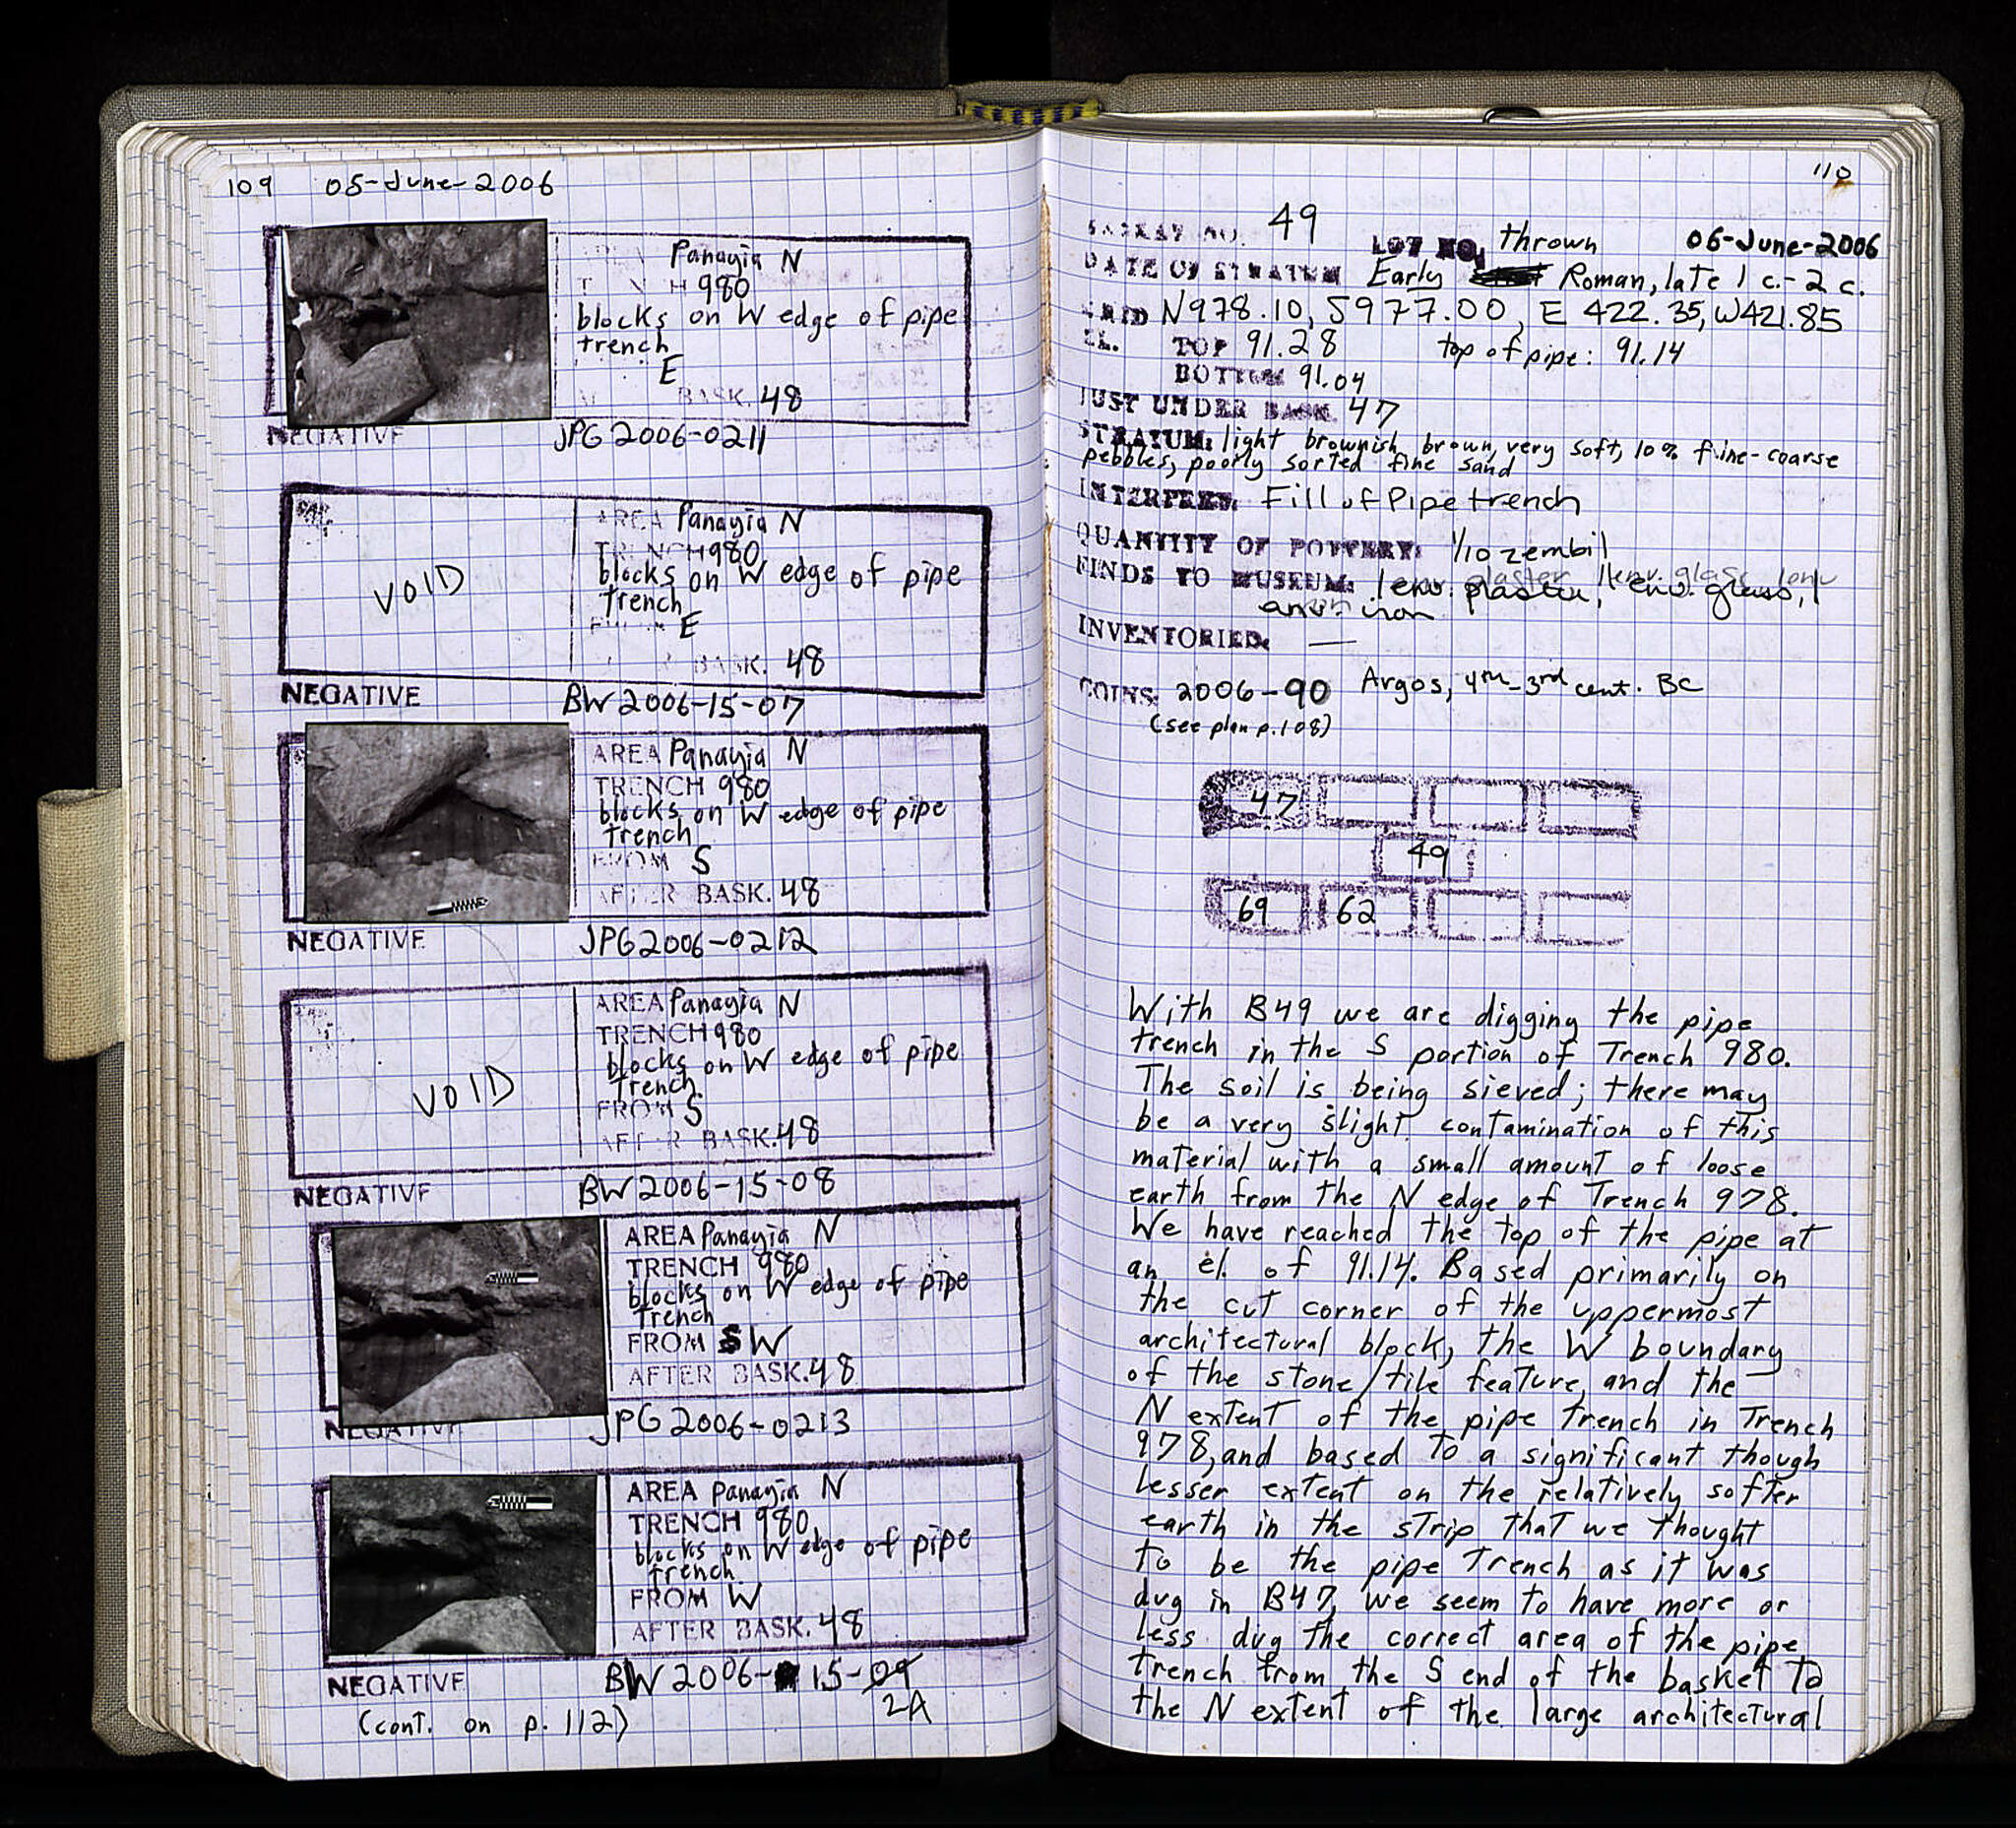 109 05-June-2006
Panayia N
980
blocks on W edge of pipe
trench
E
BASK. 48
NEGATIVE JPG 2006-0211
VOID
AREA Panayia N
TRENCH 980
blocks on W edge of pipe
trench
E
BASK. 48
NEGATIVE BW 2006-15-07
AREA Panayia N
TRENCH 980
blocks on W edge of pipe
trench
FROM S
AFTER BASK. 48
NEGATIVE JPG 2006-0212
VOID
AREA Panayia N
TRENCH 980
blocks on W edge of pipe
trench
FROM S
AFTER BASK. 48
NEGATIVE BW 2006-15-08
AREA Panayia N
TRENCH 980
blocks on W edge of pipe
trench
FROM SW
AFTER BASK. 48
NEGATIVE JPG 2006-0213
AREA Panayia N
TRENCH 980
blocks on W edge of pipe
trench
FROM W
AFTER BASK. 48
NEGATIVE BW 2006-15-09
2A
(cont. on p. 112)
110
BASKET NO. 49 LOT NO. thrown 06-June-2006
DATE OF STRATUM Early Roman, late 1 c.-2 c.
GRID N978.10, S977.00, E 422.35, W421.85
EL. TOP 91.28 top of pipe: 91.14
BOTTOM 91.04
JUST UNDER BASK. 47
STRATUM: light brownish brown, very soft, 10% fine-coarse
pebbles, poorly sorted fine sand
INTERPRET. Fill of Pipe trench
QUANTITY OF POTTERY: 1/10 zembil
FINDS TO MUSEUM: 1 env. plaster, 1 env. glass, 1
env. iron
INVENTORIED. —
COINS: 2006-90 Argos, 4th-3rd cent. BC
(see plan p.108)
47
49
69 62
With B49 we are digging the pipe
trench in the S portion of Trench 980.
The soil is being sieved; there may
be a very slight contamination of this
material with a small amount of loose
earth from the N edge of Trench 978.
We have reached the top of the pipe at
an el. of 91.14. Based primarily on
the cut corner of the uppermost
architectural block, the W boundary
of the stone/tile feature, and the
N extent of the pipe trench in Trench
978, and based to a significant though
lesser extent on the relatively softer
earth in the strip that we thought
to be the pipe trench as it was
dug in B47, we seem to have more or
less dug the correct area of the pipe
trench from the S end of the basket to
the N extent of the large architectural